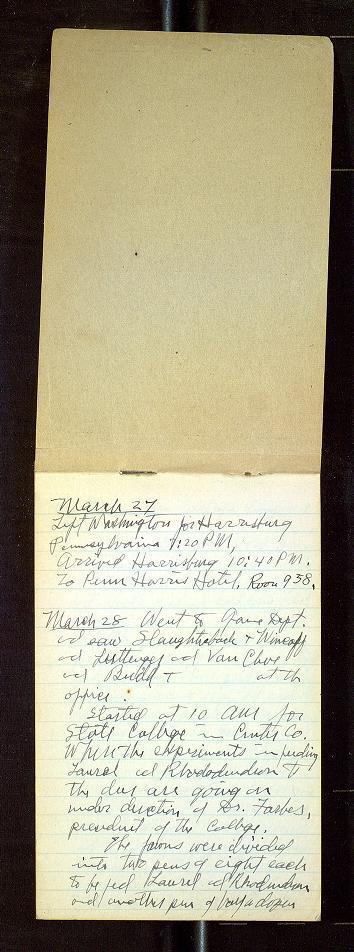 March 27
Left Washington for Harrisburg
Pennsylvania 7:20 PM,
Arrived Harrisburg 10:40 PM.
To Penn Harris Hotel, Room 938.
March 28 Went to Game Dept.
and saw Slaughterback + Wincoff
and and Van Cleve
and Budd + at the
office.
Started at 10 AM for
State College in Centre Co.
Where the experiments in feeding
Laurel and Rhododendron to
the deer are going on
under direction of Dr. Forbes,
president of the College.
The fawns were divided
into two pens of eight each
to be fed Laurel and Rhododendron
and another pen of half a dozen